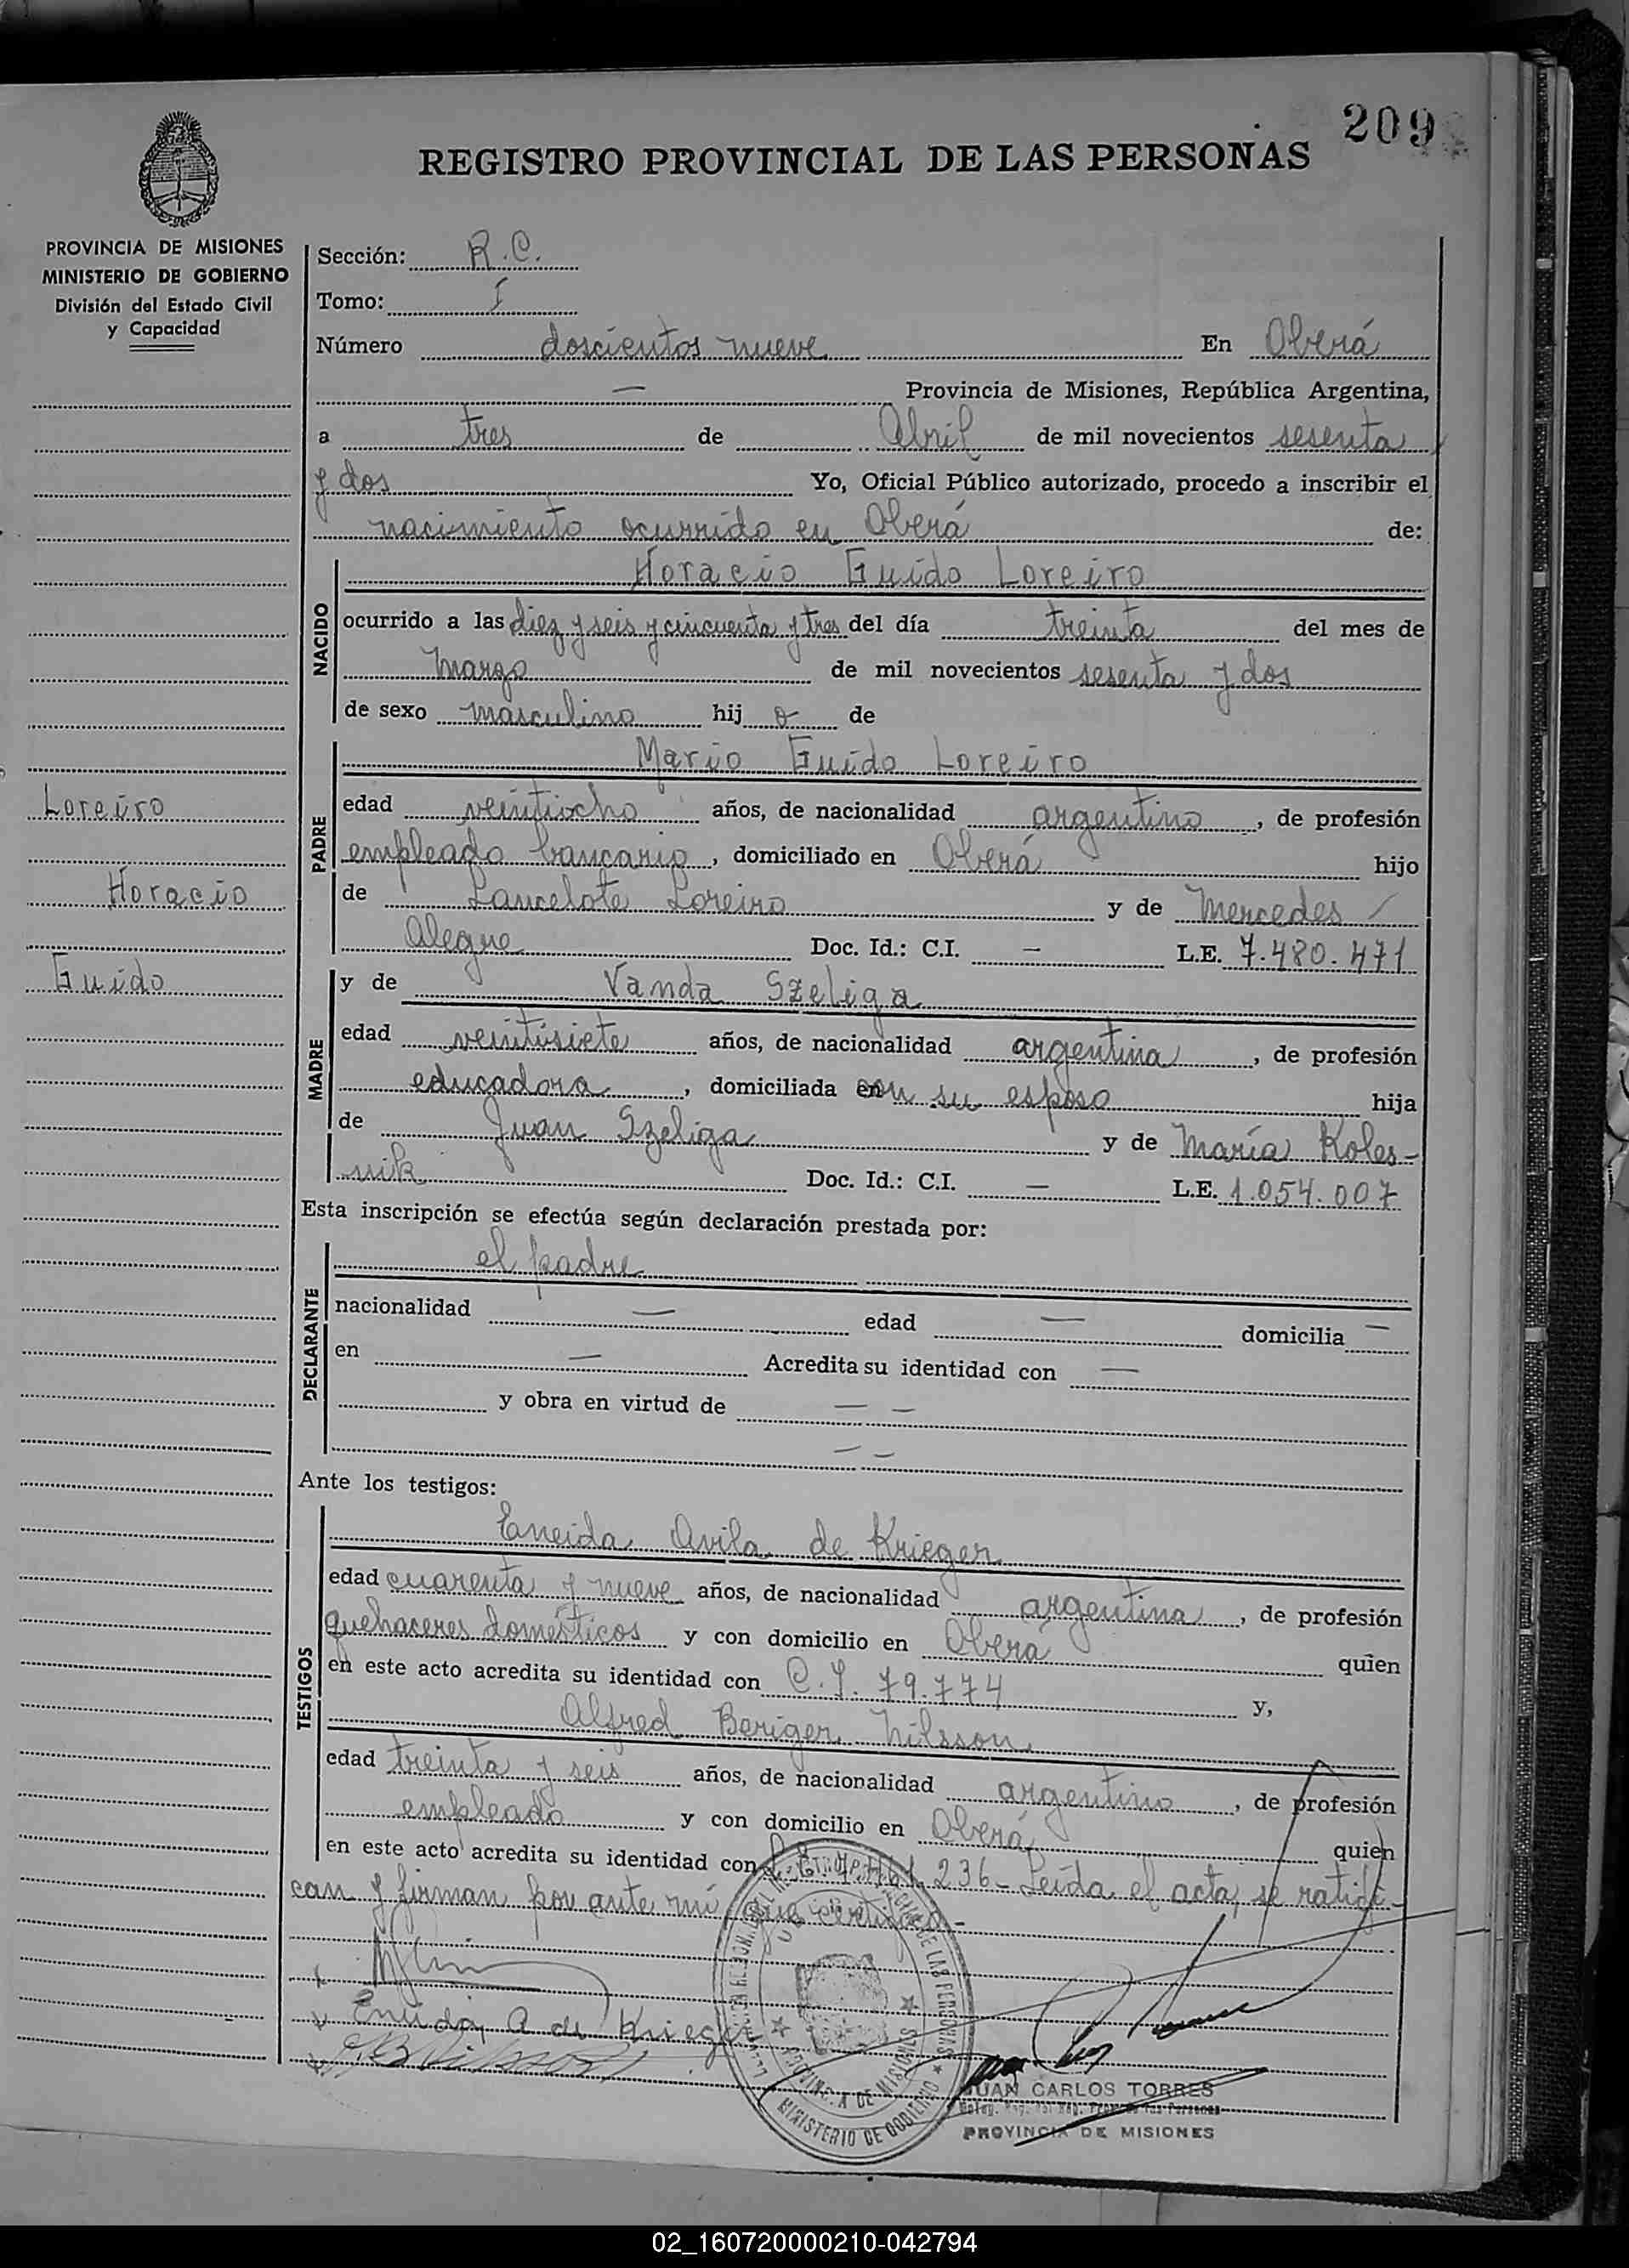 209
REGISTRO PROVINCIAL DE LAS PERSONAS
PROVINCIA DE MISIONES
MINISTERIO DE GOBIERNO
División del Estado Civil
y Capacidad
Loreiro
Horacio
Guido
Sección: R.C.
Tomo: I
Número doscientos nueve En Oberá
— Provincia de Misiones, República Argentina,
a tres de Abril de mil novecientos sesenta
y dos Yo, Oficial Público autorizado, procedo a inscribir el
nacimiento ocurrido en Oberá de:
NACIDO
Horacio Guido Loreiro
ocurrido a las diez y seis y cincuenta y tres del día treinta del mes de
Marzo de mil novecientos sesenta y dos
de sexo masculino hij o de
PADRE
Mario Guido Loreiro
edad veintiocho años, de nacionalidad argentino, de profesión
empleado bancario, domiciliado en Oberá hijo
de Lancelote Loreiro y de Mercedes
Alegre Doc. Id.: C.I. — L.E. 7.480.471
MADRE
y de Vanda Szeliga
edad veintisiete años, de nacionalidad argentina, de profesión
educadora, domiciliada con su esposo hija
de Juan Szeliga y de María Koles-
nik Doc. Id.: C.I. — L.E. 1.054.007
Esta inscripción se efectúa según declaración prestada por:
DECLARANTE
el padre
nacionalidad — edad — domicilia —
en — Acredita su identidad con —
y obra en virtud de — —
— —
Ante los testigos:
TESTIGOS
Eneida Avila de Krieger
edad cuarenta y nueve años, de nacionalidad argentina, de profesión
quehaceres domésticos y con domicilio en Oberá quien
en este acto acredita su identidad con C.I. 79.774 y,
Alfred Beriger Nilsson
edad treinta y seis años, de nacionalidad argentino, de profesión
empleado y con domicilio en Oberá quien
en este acto acredita su identidad con 236- Leída el acta, se ratifi-
can y firman por ante mí que certifico.-
Eneida A de Krieger
DE LAS PERSONAS
PROVINCIA DE MISIONES
MINISTERIO DE GOBIERNO
JUAN CARLOS TORRES
PROVINCIA DE MISIONES
02_160720000210-042794